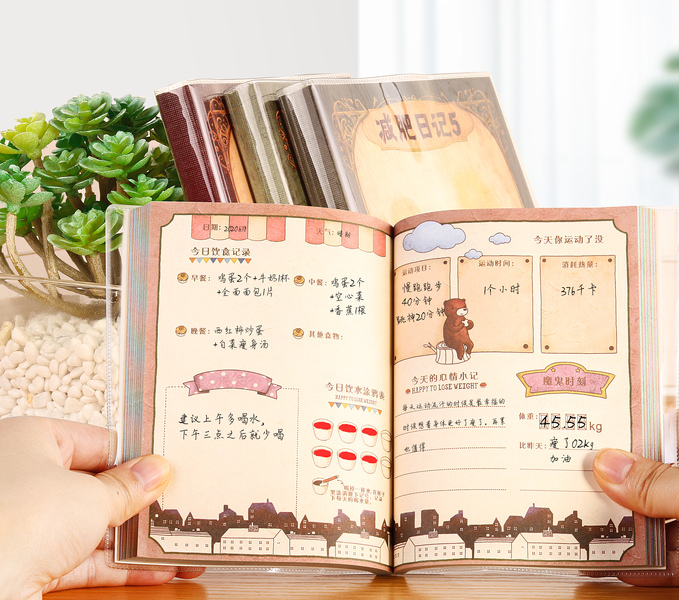 减肥日记5
日期:
天气:晴
今日饮食记录
早餐: 鸡蛋2个+牛奶1杯
+全面面包1片
中餐: 鸡蛋2个
+空心菜
+香蕉1根
晚餐: 西红柿炒蛋
+白菜瘦身汤
其他食物:
建议上午多喝水,
下午三点之后就少喝
今日饮水涂鸦
HAPPY TO LOSE WEIGHT
今天你运动了没
运动项目:
慢跑跑步
40分钟
跳神20分钟
运动时间:
1个小时
消耗热量:
376千卡
今天的心情小记
HAPPY TO LOSE WEIGHT
每天运动流汗的时候是最幸福的
时候想着身体更好了瘦了。再累
也值得
魔鬼时刻
体重: 45.55kg
比昨天: 瘦了02kg
加油